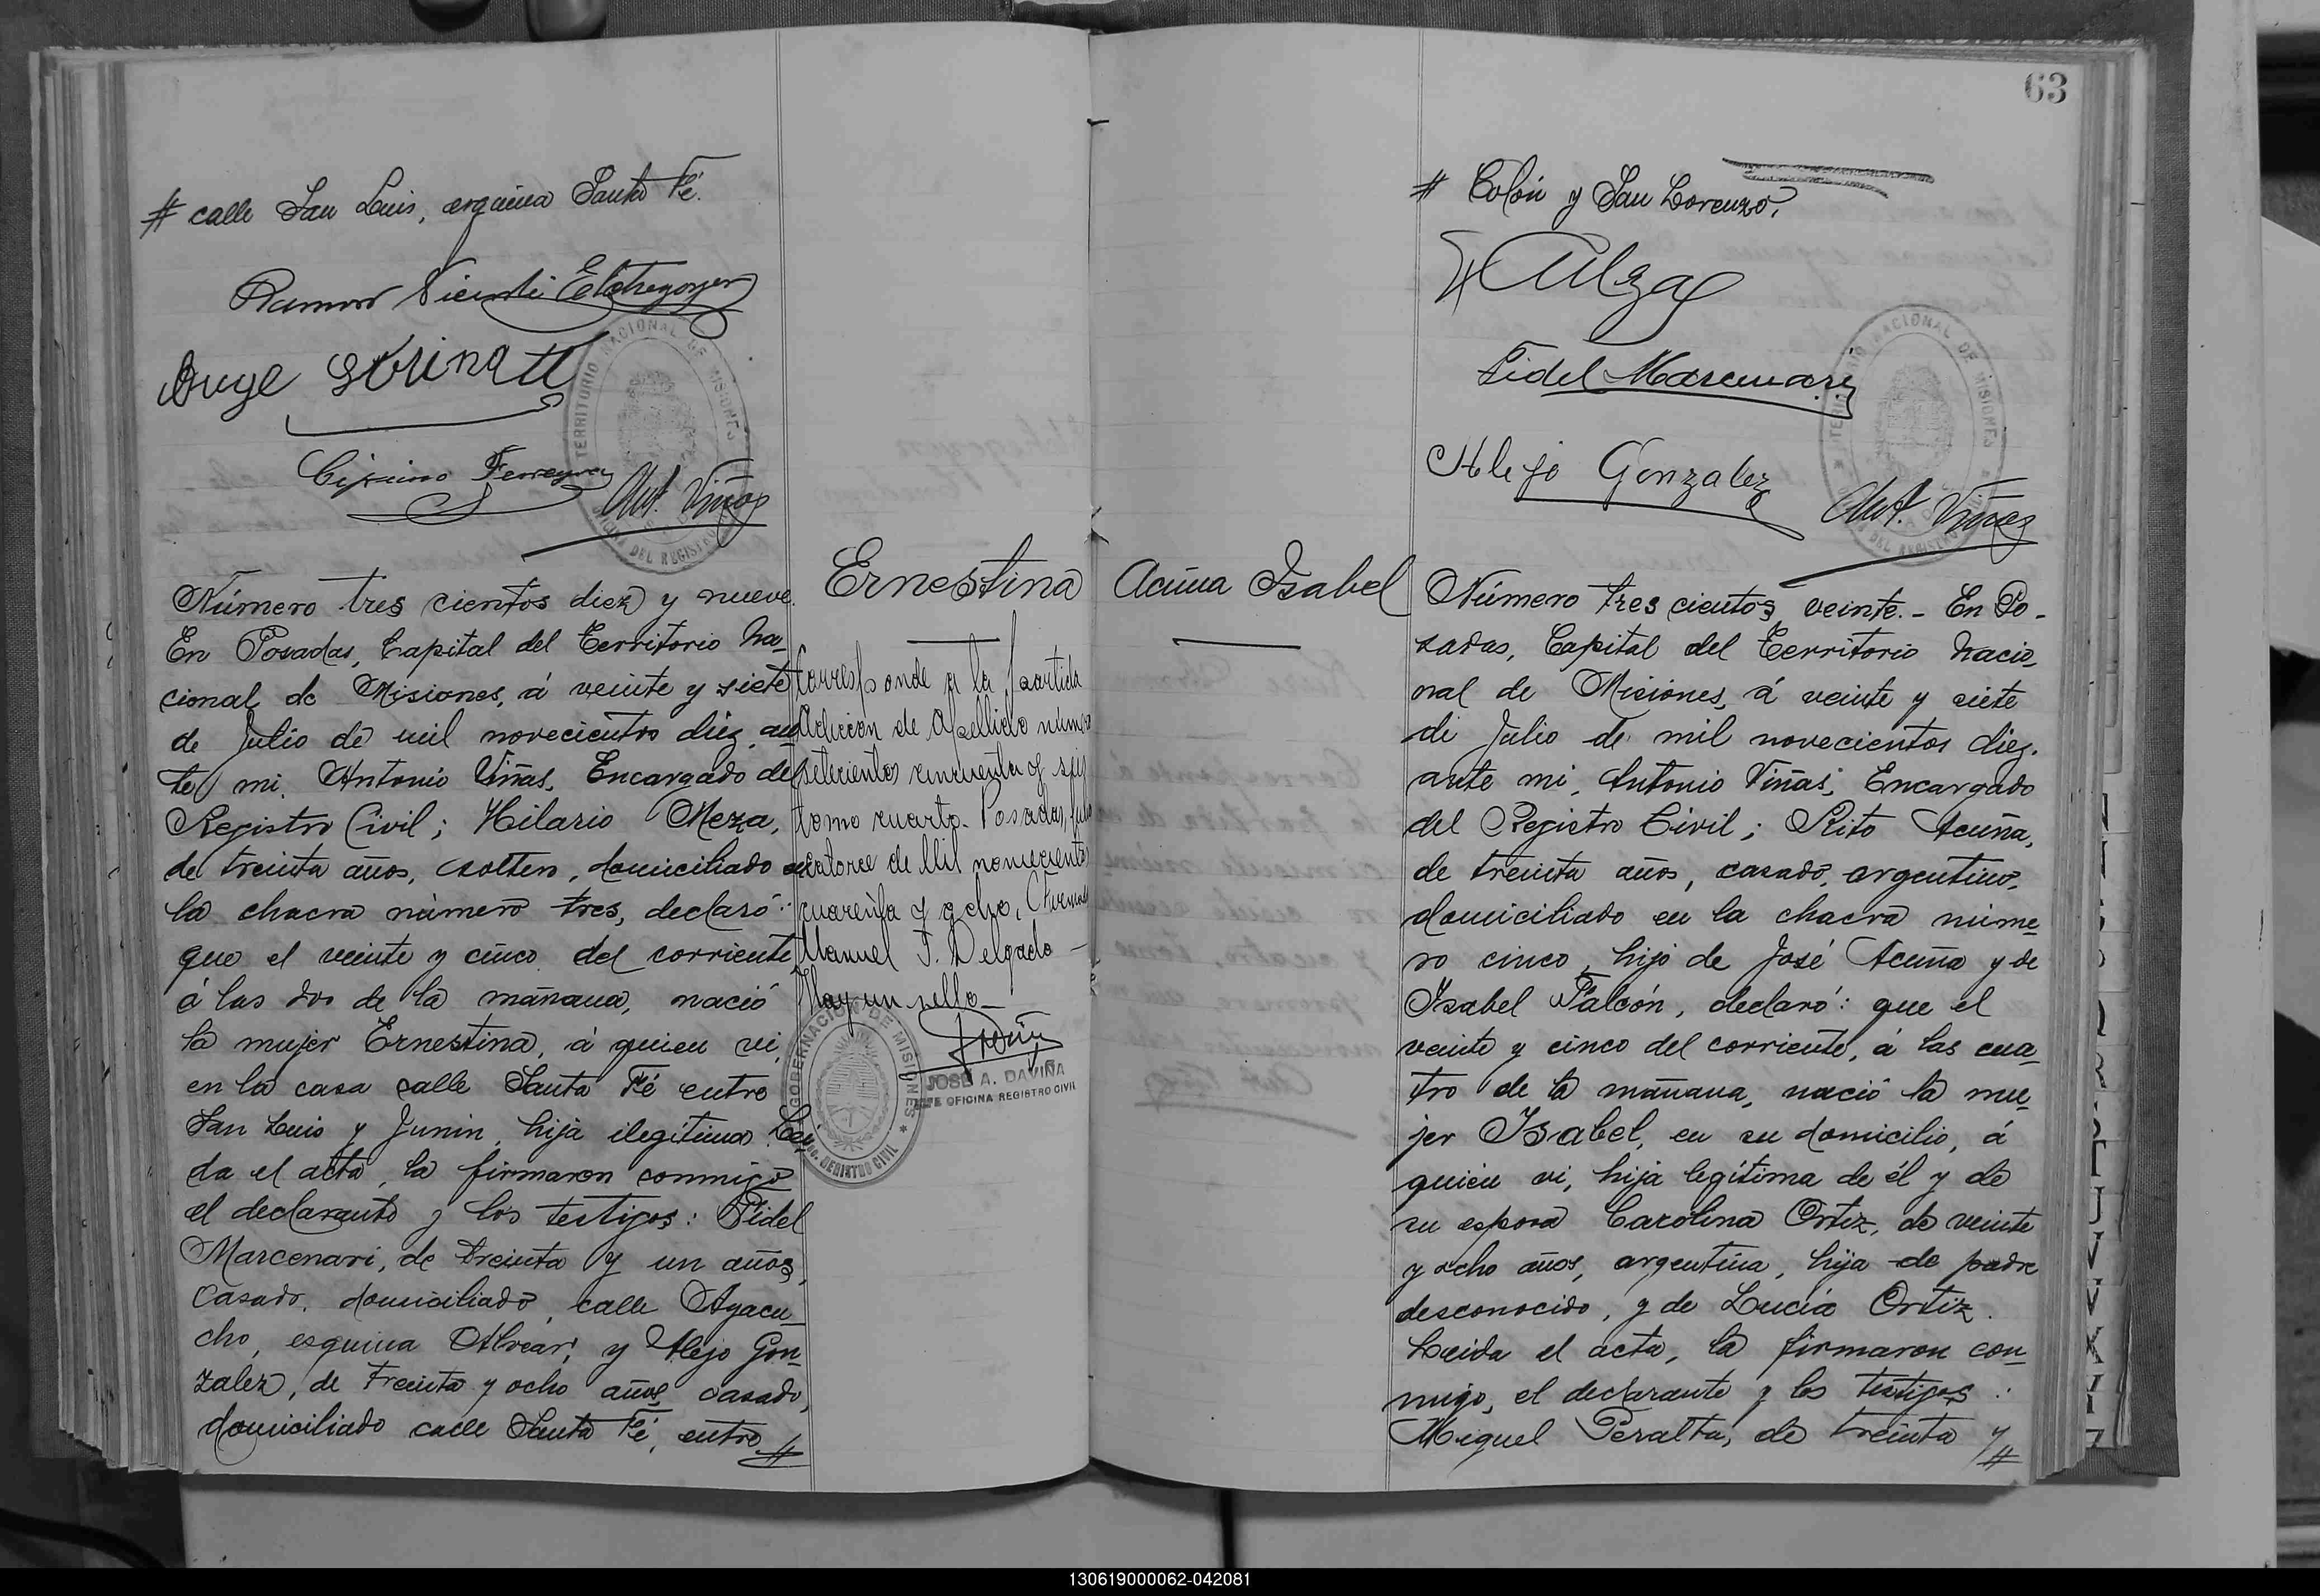 # calle San Luis, esquina Santa Fé.
Ramon Vicente Etchegoyen
Cipriano Ferreyra
Ant. Viñas
TERRITORIO NACIONAL DE MISIONES
DEL REGISTRO
Número tres cientos diez y nueve.
En Posadas, Capital del Territorio Na-
cional de Misiones, á veinte y siete
de Julio de mil novecientos diez, an
te mi, Antonio Viñas, Encargado del
Registro Civil; Hilario Meza,
de treinta años, soltero, domiciliado en
la chacra número tres, declaró:
que el veinte y cinco del corriente
á las dos de la mañana, nació
la mujer Ernestina, á quien vi,
en la casa calle Santa Fé entre
San Luis y Junin, hija ilegítima. Lei
da el acta, la firmaron conmigo
el declarante y los testigos: Fidel
Marcenari, de treinta y un años,
casado, domiciliado, calle Ayacu-
cho, esquina Alvear, y Alejo Gon-
zalez, de treinta y ocho años, casado,
domiciliado calle Santa Fé, entre #
Ernestina
Corresponde a la partida
Adicion de Apellido número
setecientos cincuenta y seis
tomo cuarto. Posadas, julio
catorce de Mil novecientos
cuarenta y ocho. (Firmado
Manuel J. Delgado -
Hay un sello -
GOBERNACION DE MISIONES
REGISTRO CIVIL
JOSE A. DAVIÑA
JEFE OFICINA REGISTRO CIVIL
63
# Colón y San Lorenzo.
Fidel Marcenari
Alejo Gonzalez
Ant. Viñas
TERRITORIO NACIONAL DE MISIONES
DEL REGISTRO
Acuña Isabel
Número tres cientos veinte. - En Po-
sadas, Capital del Territorio Nacio-
nal de Misiones, á veinte y siete
de Julio de mil novecientos diez,
ante mi, Antonio Viñas, Encargado
del Registro Civil; Rito Acuña,
de treinta años, casado, argentino,
domiciliado en la chacra núme-
ro cinco, hijo de José Acuña y de
Isabel Falcón, declaró: que el
veinte y cinco del corriente, á las cua-
tro de la mañana, nació la mu-
jer Isabel, en su domicilio, á
quien vi, hija legítima de él y de
su esposa Carolina Ortiz, de veinte
y ocho años, argentina, hija de padre
desconocido, y de Lucía Ortiz.
Leida el acta, la firmaron con-
migo, el declarante y los testigos:
Miguel Peralta, de treinta y #
130619000062-042081